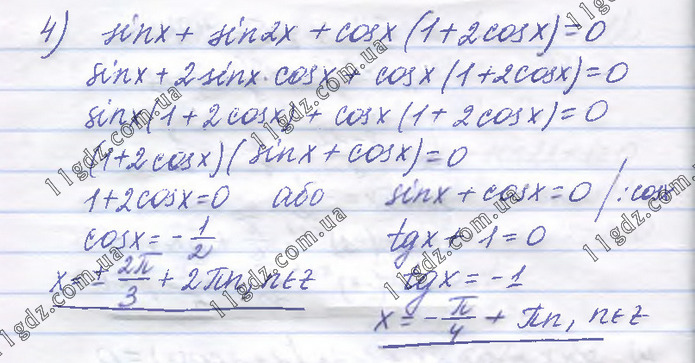 4) sinx + sin2x + cosx (1+2cosx)=0
sinx + 2sinx cosx + cosx (1+2cosx)=0
sinx(1+2cosx) + cosx (1+2cosx)=0
(1+2cosx)(sinx+cosx)=0
1+2cosx=0 або sinx+cosx=0 /:cosx
cosx=-1/2 tgx+1=0
x=± 2π/3 + 2πn, n∈z tgx=-1
x=-π/4 + πn, n∈z
11gdz.com.ua
11gdz.com.ua
11gdz.com.ua
11gdz.com.ua
11gdz.com.ua
11gdz.com.ua